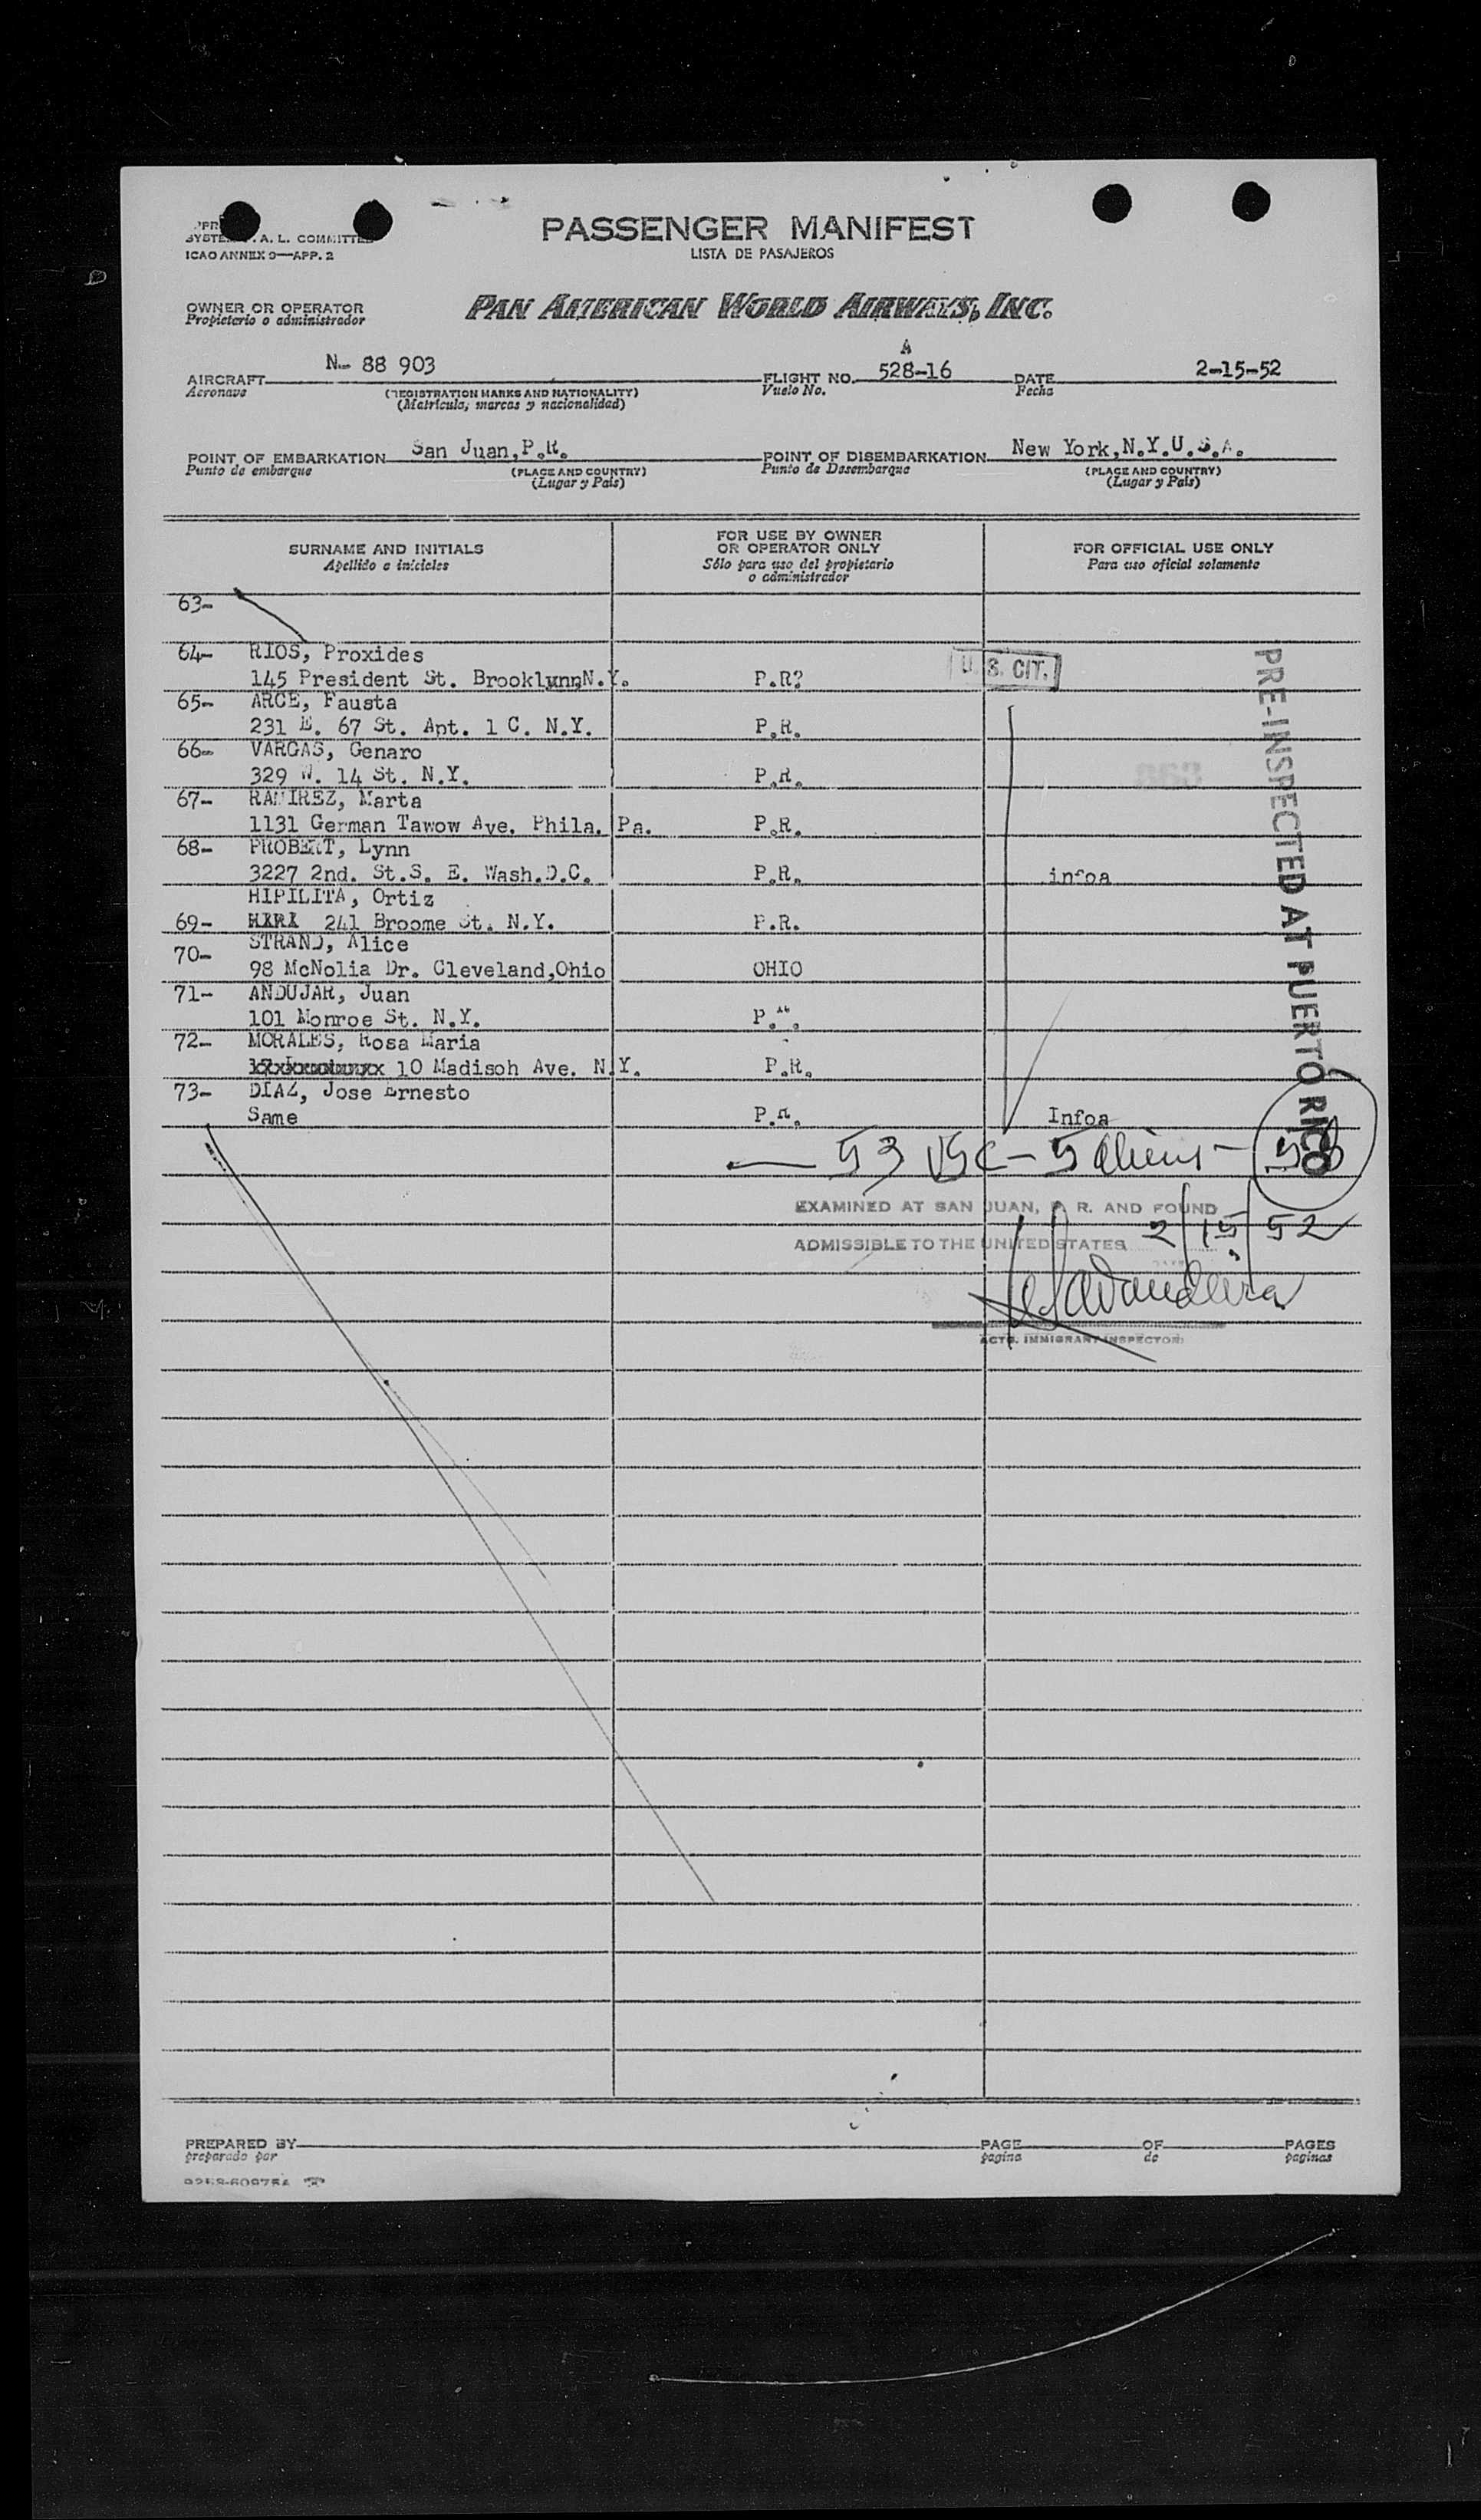 PASSENGER MANIFEST
LISTA DE PASAJEROS
A. L. COMMITTEE
ICAO ANNEX 9—APP. 2
OWNER OR OPERATOR
Propietario o administrador
PAN AMERICAN WORLD AIRWAYS, INC.
AIRCRAFT N- 88 903
Aeronave
(REGISTRATION MARKS AND NATIONALITY)
(Matrícula, marcas y nacionalidad)
A
FLIGHT NO. 528-16
Vuelo No.
DATE 2-15-52
Fecha
POINT OF EMBARKATION San Juan,P.R.
Punto de embarque
(PLACE AND COUNTRY)
(Lugar y País)
POINT OF DISEMBARKATION New York,N.Y.U.S.A.
Punto de Desembarque
(PLACE AND COUNTRY)
(Lugar y País)
SURNAME AND INITIALS
Apellido e iniciales
FOR USE BY OWNER
OR OPERATOR ONLY
Sólo para uso del propietario
o administrador
FOR OFFICIAL USE ONLY
Para uso oficial solamente
63-
64- RIOS, Proxides
145 President St. BrooklynnN.Y. P.R? U. S. CIT.
65- ARCE, Fausta
231 E. 67 St. Apt. 1 C. N.Y. P.R.
66- VARGAS, Genaro
329 W. 14 St. N.Y. P.R.
67- RAMIREZ, Marta
1131 German Tawow Ave. Phila. Pa. P.R.
68- PROBERT, Lynn
3227 2nd. St.S. E. Wash.D.C. P.R. infoa
HIPILITA, Ortiz
69- 241 Broome St. N.Y. P.R.
70- STRAND, Alice
98 McNolia Dr. Cleveland,Ohio OHIO
71- ANDUJAR, Juan
101 Monroe St. N.Y. P.R.
72- MORALES, Rosa Maria
10 Madisoh Ave. N.Y. P.R.
73- DIAZ, Jose Ernesto
Same P.R. Infoa
PRE-INSPECTED AT PUERTO RICO
53 USC - 5 aliens - 58
EXAMINED AT SAN JUAN, P. R. AND FOUND
ADMISSIBLE TO THE UNITED STATES 2/15/52
ACTG. IMMIGRANT INSPECTOR
PREPARED BY
preparado por
PAGE OF PAGES
pagina de paginas